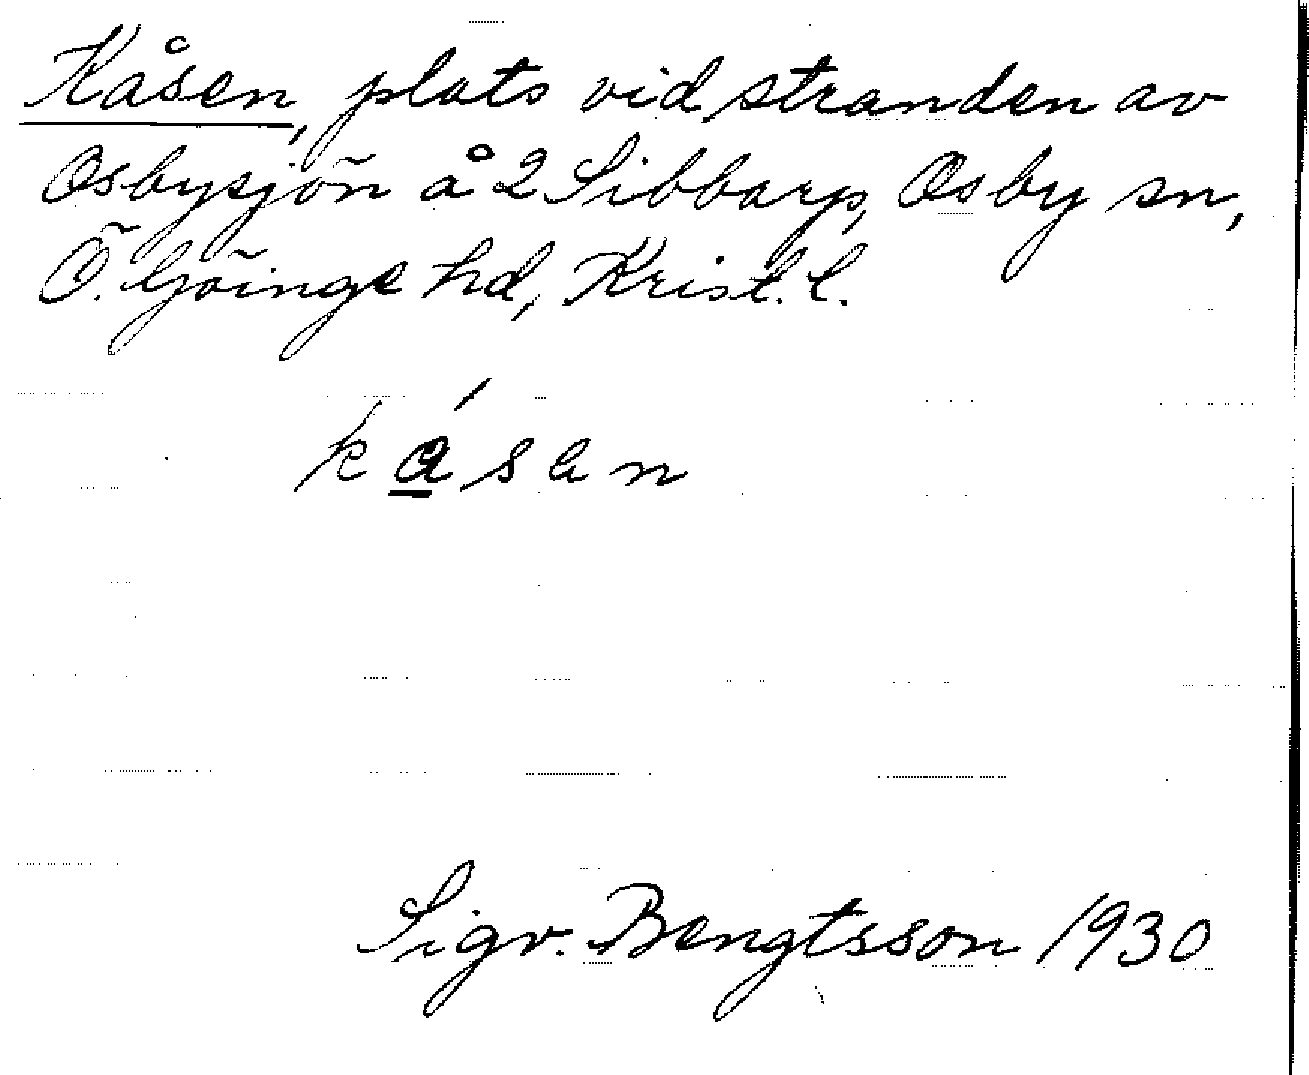 Kåsen, plats vid stranden av
Osbysjön å 2 Sibbarp, Osby sn,
Ö. Göinge hd, Krist. l.
ka̲´san
Sigv. Bengtsson 1930